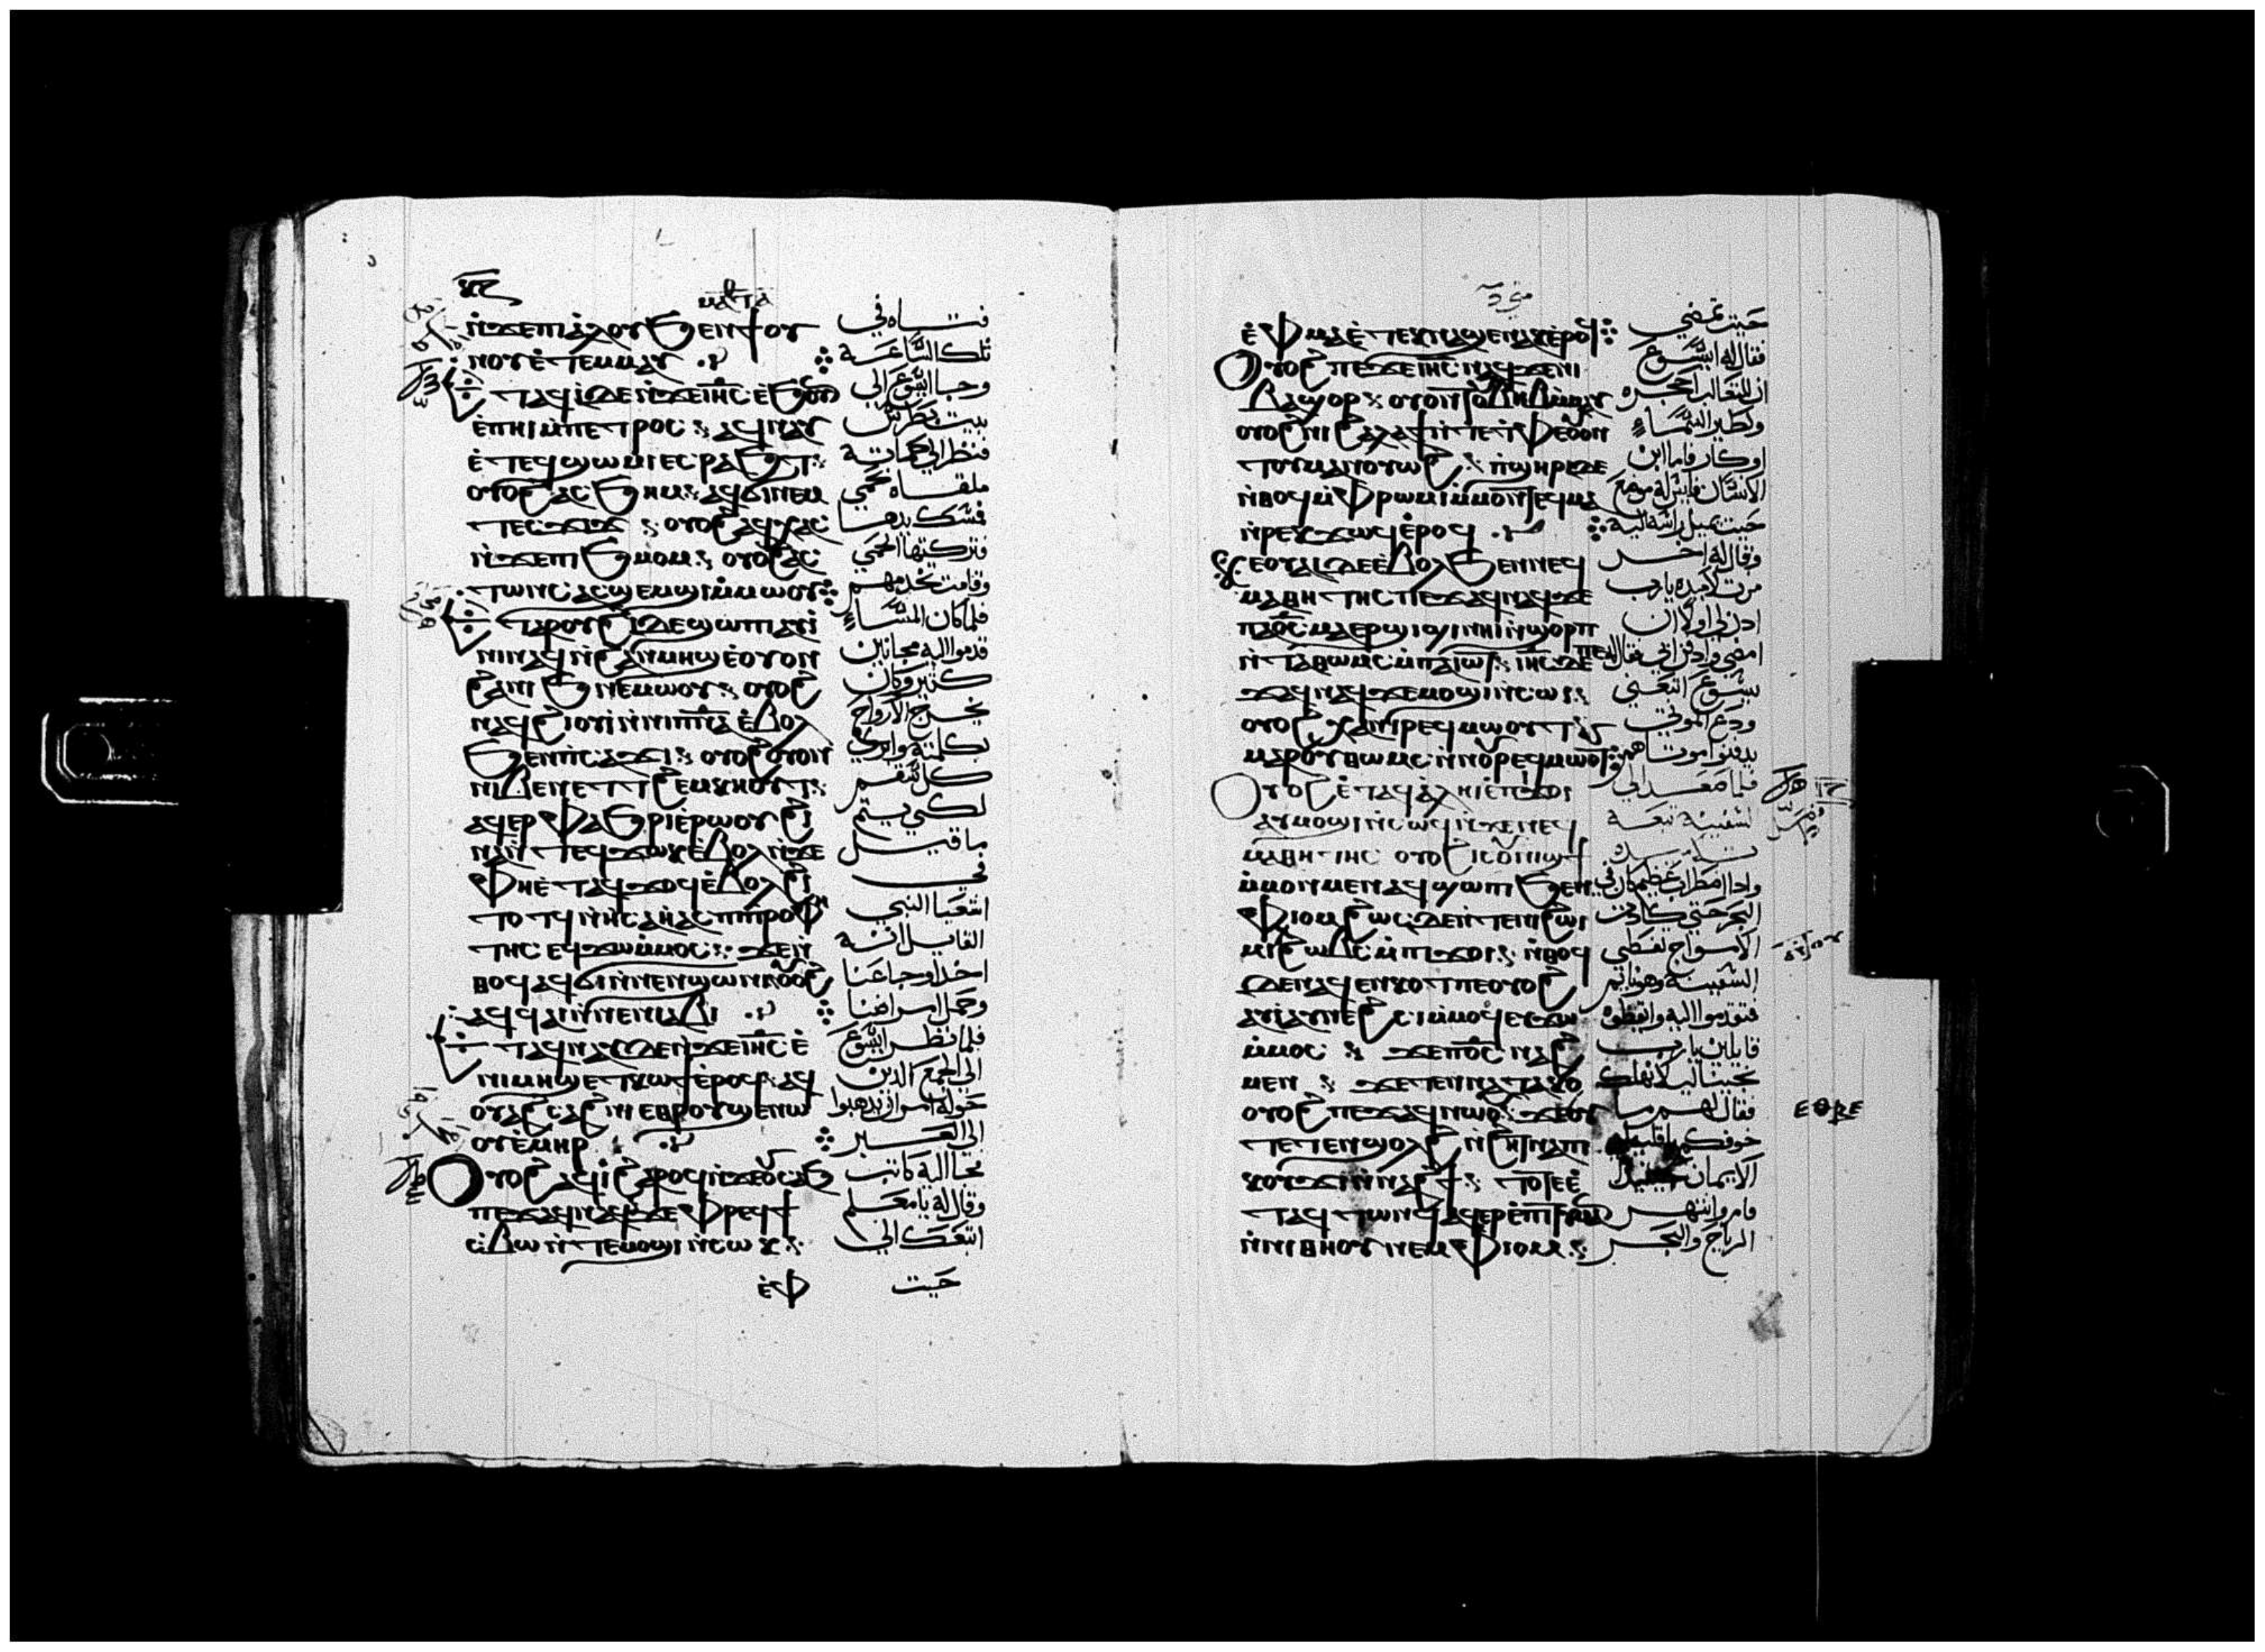 ⲙⲁⲧⲑ
ⲛ̇ϫⲉⲡⲓⲁ̀ⲗⲟⲩ ϧⲉⲛϯⲟⲩ
ⲛⲟⲩ ⲉ̀ⲧⲉⲙⲙⲁⲩ
ⲧⲁϥⲓ̀ ⲇⲉ ⲛ̇ϫⲉⲓⲏ̅ⲥ̅ ⲉ̀ϧⲟⲩⲛ
ⲉ̀ⲡⲏⲓ ⲙ̇ⲡⲉⲧⲣⲟⲥ ⲁϥⲛⲁⲩ
ⲉ̀ⲧⲉϥϣⲱⲙⲓ ⲉⲥⲣⲁϧⲧ
ⲟⲩⲟϩ ⲁⲥϧⲏⲙ ⲁϥϭⲓ ⲛⲉⲙ
ⲧⲉⲥϫⲓϫ ⲟⲩⲟϩ ⲁϥⲭⲁⲥ
ⲛ̇ϫⲉⲡⲓϧⲙⲟⲙ ⲟⲩⲟϩ ⲁⲥ
ⲧⲱⲛⲥ ⲁⲥϣⲉⲙϣⲓ ⲙ̇ⲙⲱⲟⲩ
ⲧⲁⲣⲟⲩϩⲓ ⲇⲉ ϣⲱⲡⲓ ⲁⲩⲓ̀ⲛⲓ
ⲛⲁϥ ⲛ̇ϩⲁⲛⲙⲏϣ ⲉ̀ⲟⲩⲟⲛ
ϩⲁⲛⲓϧ ⲛⲉⲙⲱⲟⲩ ⲟⲩⲟϩ
ⲛⲁϥϩⲓⲟⲩⲓ̀ ⲛ̇ⲛⲓⲡⲛ̅ⲁ̅ ⲉ̀ⲃⲟⲗ
ϧⲉⲛⲡⲥⲁϫⲓ ⲟⲩⲟϩ ⲟⲩⲟⲛ
ⲛⲓⲃⲉⲛ ⲉⲧⲧϩⲉⲙⲕⲏⲟⲩⲧ
ⲁϥⲉⲣⲫⲁϧⲣⲓ ⲉ̀ⲣⲱⲟⲩ ϩⲓ
ⲛⲁ ⲛ̇ⲧⲉϥϫⲱⲕ ⲉ̀ⲃⲟⲗ ⲛ̇ϫⲉ
ⲫⲏ ⲉ̀ⲧⲁϥϫⲟϥ ⲉ̀ⲃⲟⲗϩⲓ
ⲧⲟⲧϥ ⲛ̇ⲏⲥⲁⲏ̀ⲁⲥ ⲡⲓⲡⲣⲟⲫⲏ
ⲧⲏⲥ ⲉϥϫⲱ ⲙ̇ⲙⲟⲥ ϫⲉ ⲛ̇
ⲑⲟϥ ⲁϥϭⲓ ⲛ̇ⲛⲉⲛϣⲱⲛⲓ ⲟⲩⲟϩ
ⲁϥϥⲁⲓ ⲛ̇ⲛⲉⲛⲓⲁⲃⲓ
ⲧⲁϥⲛⲁⲩ ⲇⲉ ⲛ̇ϫⲉⲓⲏ̅ⲥ̅ ⲉ̀
ⲛⲓⲙⲏϣ ⲉⲧⲕⲱϯ ⲉ̀ⲣⲟϥ ⲁϥ
ⲟⲩⲁϩⲥⲁϩⲛⲓ ⲉⲑⲣⲟⲩϣⲉⲛⲱ
ⲟⲩ ⲉ̀ⲙⲏⲣ
ⲟⲩⲟϩ ⲁϥⲓ̀ ϩⲁⲣⲟϥ ⲛ̇ϫⲉⲟⲩⲥⲁϧ
ⲡⲉϫⲁϥ ⲛⲁϥ ϫⲉ ⲫⲣⲉϥϯ
ⲥ̇ⲃⲱ ⲛ̇ⲧⲉⲙⲟϣⲓ ⲛ̇ⲥⲱⲕ
ⲉ̀ⲫ
فتاه في
تلك الساعة
وجا يسوع الى
بيت بطرس
فنظر الى حماته
ملقاه تحمي
فمسك يدها
فتركتها الحمي
وقامت تخدمهم
فلما كان المساء
قدموا اليه مجانين
كثير وكان
يخرج الارواح
بكلمته وابري
كل سقم
لكي يتم
ما قيل
في
اشعيا النبي
القايل انه
اخذ اوجاعنا
وحمل امراضنا
فلما نظر يسوع
الى الجمع الذين
حوله امر ان يذهبوا
الى العبر
فجا اليه كاتب
وقال له يا معلم
اتبعك الى
حيث
ⲉ̀ⲫⲙⲁ ⲉ̀ⲧⲉⲕⲛⲁϣⲉⲛⲁⲕ ⲉ̀ⲣⲟϥ
ⲟⲩⲟϩ ⲡⲉϫⲉⲓⲏ̅ⲥ̅ ⲛⲁϥ ϫⲉ ⲛⲓ
ⲃⲁϣⲟⲣ ⲟⲩⲟⲛⲧⲟⲩ ⲃⲏⲃ ⲙ̇ⲙⲁⲩ
ⲟⲩⲟϩ ⲛⲓϩⲁⲗⲁϯ ⲛ̇ⲧⲉⲧⲫⲉ ⲟⲩⲟⲛ
ⲧⲟⲩ ⲙⲁⲛⲟⲩⲱϩ ⲡ̇ϣⲏⲣⲓ ⲇⲉ
ⲛ̇ⲑⲟϥ ⲙ̇ⲫⲣⲱⲙⲓ ⲙ̇ⲙⲟⲛⲧⲉϥⲙⲁ
ⲛ̇ⲣⲉⲕϫⲱϥ ⲉ̀ⲣⲟϥ
ⲕⲉⲟⲩⲁⲓ ⲇⲉ ⲉ̀ⲃⲟⲗϧⲉⲛⲛⲉϥ
ⲙⲁⲑⲏⲧⲏⲥ ⲡⲉϫⲁϥ ⲛⲁϥ ϫⲉ
ⲡⲁⲟ̅ⲥ̅ ⲙⲁⲉⲣϣⲓϣⲓ ⲛⲏⲓ ⲛ̇ϣⲟⲣⲡ
ⲛ̇ⲧⲁⲑⲱⲙⲥ ⲙ̇ⲡⲁⲓⲱⲧ ⲓⲏ̅ⲥ̅ ⲇⲉ ⲡⲉ
ϫⲁϥ ⲛⲁϥ ϫⲉ ⲙⲟϣⲓ ⲛ̇ⲥⲱⲓ
ⲟⲩⲟϩ ⲭⲁⲛⲓⲣⲉϥⲙⲱⲟⲩⲧ
ⲙⲁⲣⲟⲩⲑⲱⲙⲥ ⲛ̇ⲛⲟⲩⲣⲉϥⲙⲱⲟⲩⲧ
ⲟⲩⲟϩ ⲉ̀ⲧⲁϥⲁ̀ⲗⲏⲓ ⲉ̀ⲡϫⲟⲓ
ⲁⲩⲙⲟϣⲓ ⲛ̇ⲥⲱϥ ⲛ̇ϫⲉⲛⲉϥ
ⲙⲁⲑⲏⲧⲏⲥ ⲟⲩⲟϩ ⲓⲥ ⲟⲩⲛⲓϣϯ
ⲙ̇ⲙⲟⲛⲙⲉⲛ ⲁϥϣⲱⲡⲓ ϧⲉⲛ
ⲫⲓⲟⲙ ϩⲱⲥⲇⲉ ⲛ̇ⲧⲉⲛⲓϩⲱⲓⲙⲓ
ϩⲱⲃⲥ ⲙ̇ⲡⲓϫⲟⲓ ⲛ̇ⲑⲟϥ
ⲇⲉ ⲛⲁϥⲉⲛⲕⲟⲧ ⲡⲉ ⲟⲩⲟϩ
ⲁⲩⲓ̀ ⲁⲩⲛⲉϩⲥⲓ ⲙ̇ⲙⲟϥ ⲉⲩϫⲱ
ⲙ̇ⲙⲟⲥ ϫⲉ ⲡⲟ̅ⲥ̅ ⲛⲁϩ
ⲙⲉⲛ ϫⲉ ⲧⲉⲛⲛⲁⲧⲁⲕⲟ
ⲟⲩⲟϩ ⲡⲉϫⲁϥ ⲛⲱⲟⲩ ϫⲉ ⲉⲑ
ⲧⲉⲧⲉⲛϣⲟⲗϩ ⲛ̇ϩⲏⲧ ⲛⲁⲡⲓ
ⲕⲟⲩϫⲓ ⲛ̇ⲛⲁϩϯ ⲧⲟⲧⲉ ⲉ̀
ⲧⲁϥⲧⲱⲛϥ ⲁϥⲉⲣⲉ̀ⲡⲓⲧⲓⲙⲁⲛ
ⲛ̇ⲛⲓⲑⲏⲟⲩ ⲛⲉⲙ ⲫⲓⲟⲙ
ⲉⲑⲃⲉ
حيث تمضي
فقال له يسوع
ان للثعالب احجره
ولطير السماء
اوكار فاما ابن
الانسان فليس له موضع
حيث يميل راسه اليه
وقال له اخر
من تلاميذه يا رب
اذن لي اولا ان
امضي وادفن ابي فقال له
يسوع اتبعني
ودع الموتي
يدفنوا موتاهم
فلما صعد الى
السفينة تبعه
تلاميذه
واذا اضطراب عظيم كان في
البحر حتى كادت
الامواج تغطي
السفينة وهو نايم
فتقدموا اليه وايقظوه
قايلين يا رب
نجينا ليلا نهلك
فقال لهم ما
الايمان حينيذ
قام وانتهر
الرياح والبحر